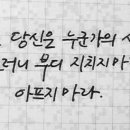 당신은 누군가의 사
러니 부디 지치지 마
아프지 마라.